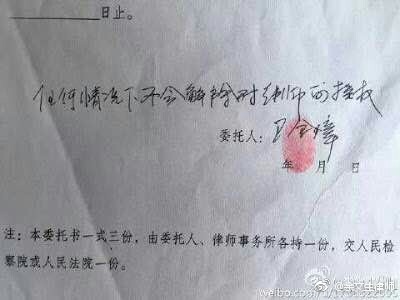 日止。
任何情况下不会解除对律师的授权
委托人：王全璋
年 月 日
注：本委托书一式三份，由委托人、律师事务所各持一份，交人民检
察院或人民法院一份。
@余文生律师